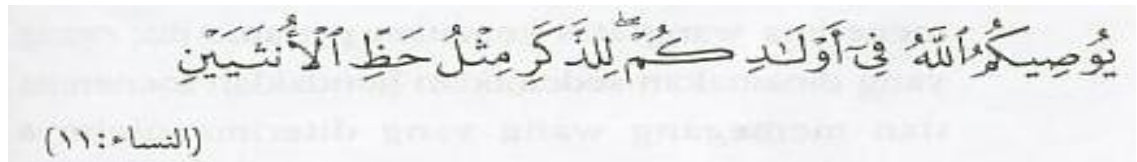 يُوصِيكُمُ ٱللَّهُ فِىٓ أَوْلَـٰدِكُمْ ۖ لِلذَّكَرِ مِثْلُ حَظِّ ٱلْأُنثَيَيْنِ
(النساء: ١١)